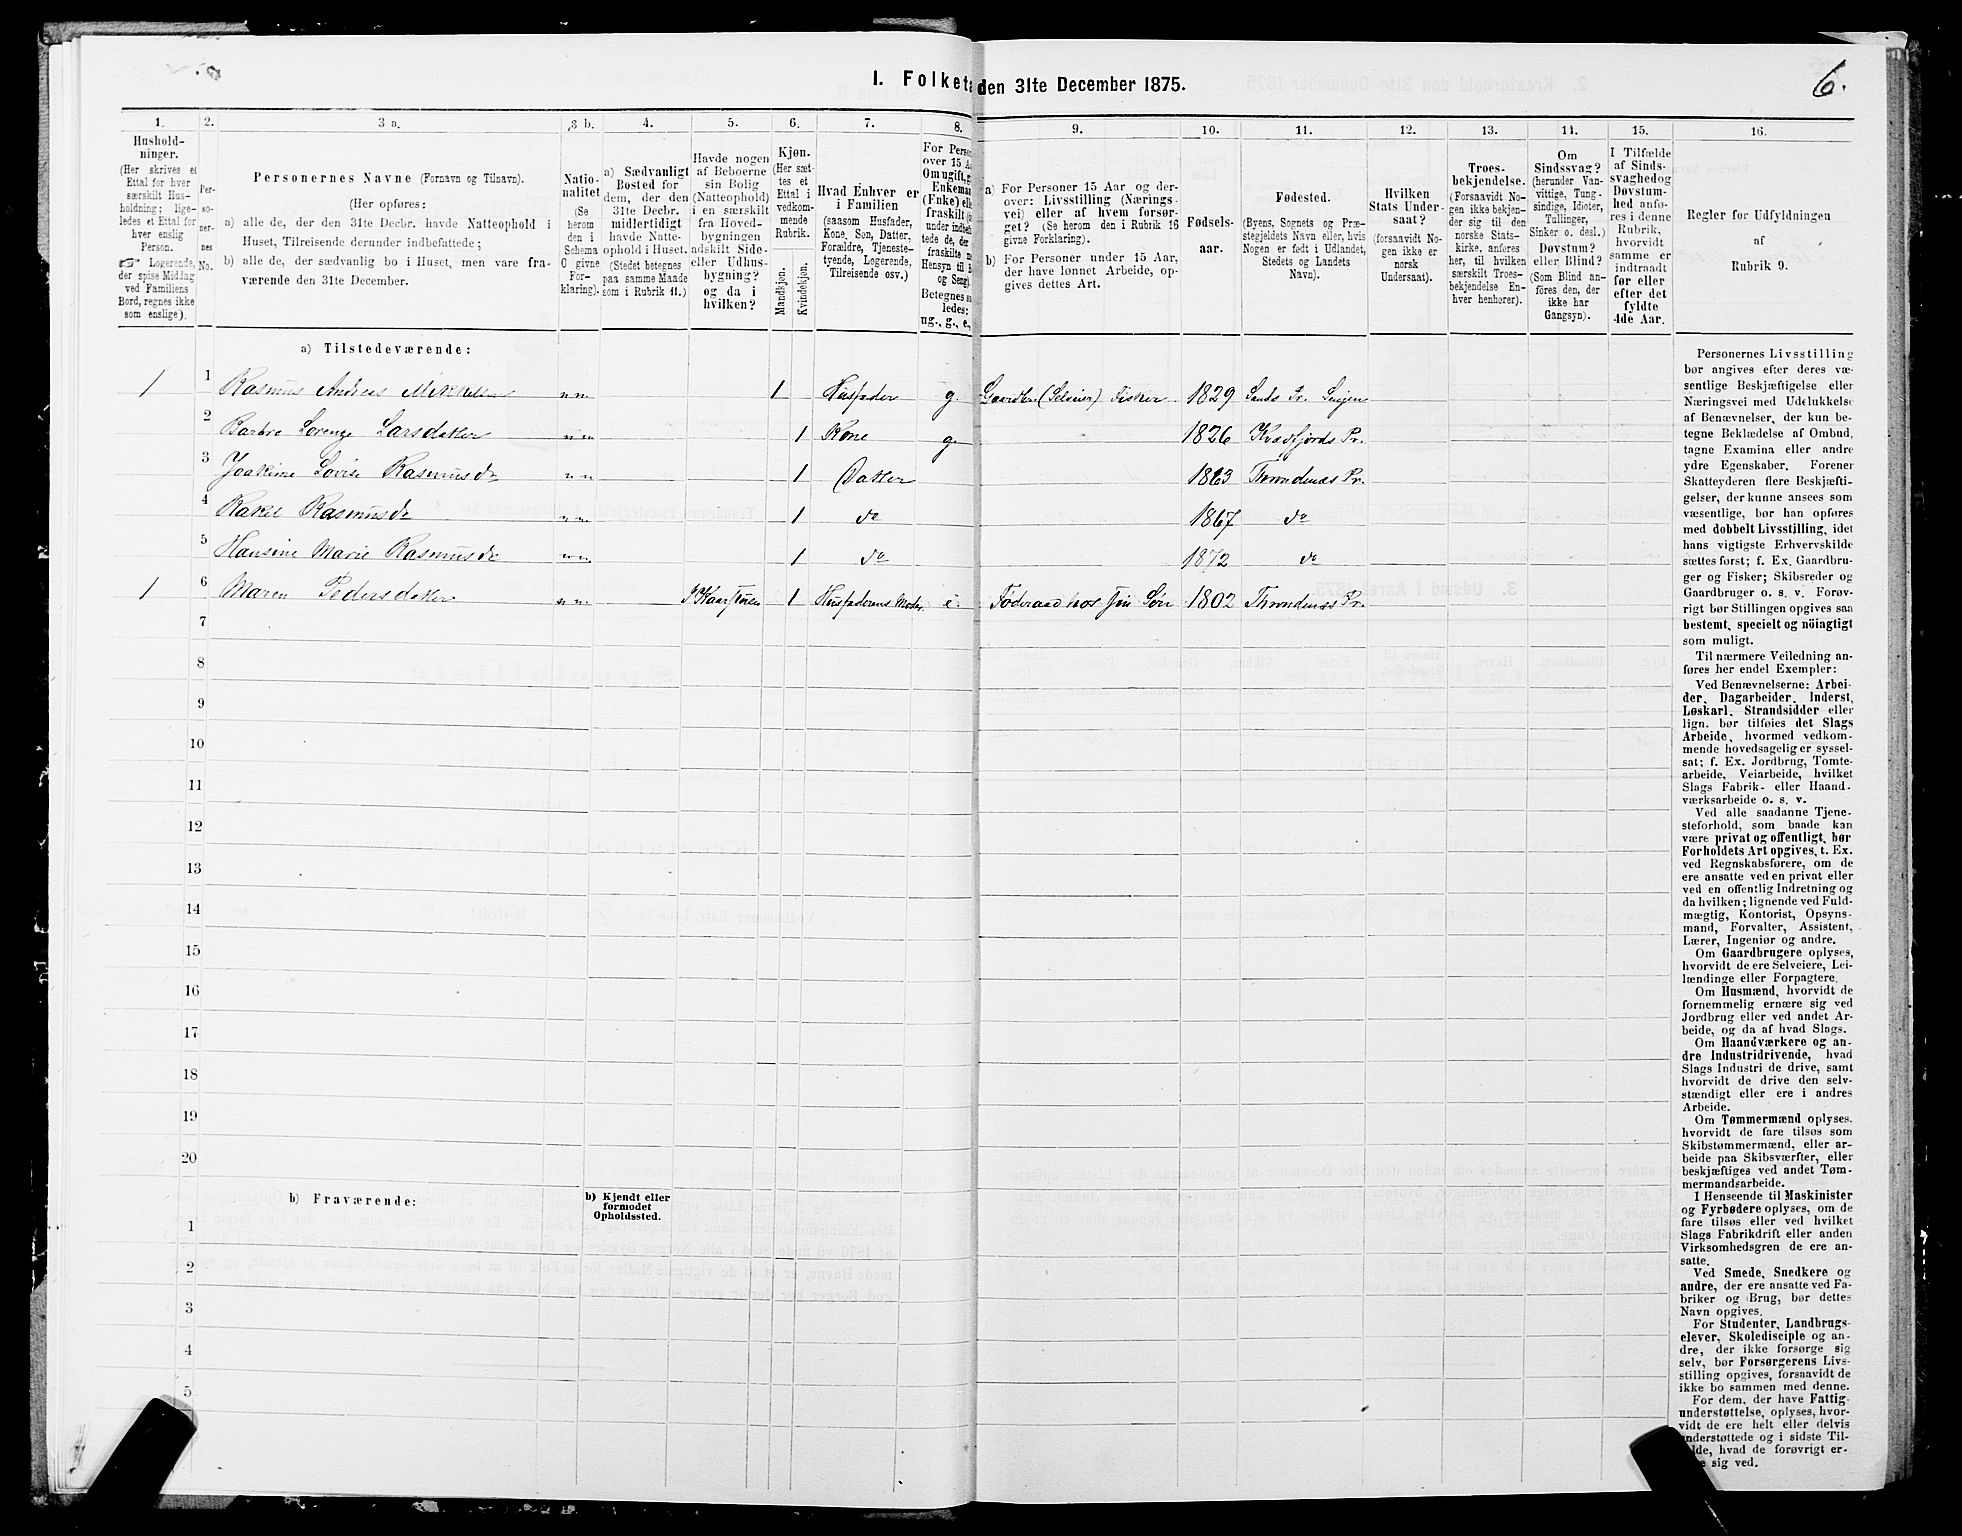 1. Folketæ den 31te December 1875.
6.
1. 2. 3 a. 3 b. 4. 5. 6. 7. 8. 9. 10. 11. 12. 13. 14. 15. 16.
Hushold-
ninger.
(Her skrives et
Ettal for hver
særskilt Hus-
holdning; lige-
ledes et Ettal for
hver enslig
Person.
☞ Logerende,
der spise Middag
ved Familiens
Bord, regnes ikke
som enslige).
Per-
so-
ner-
nes
No.
Personernes Navne (Fornavn og Tilnavn).
(Her opføres:
a) alle de, der den 31te Decbr. havde Natteophold i
Huset, Tilreisende derunder indbefattede;
b) alle de, der sædvanlig bo i Huset, men vare fra-
værende den 31te December.
Natio-
nalitet
(Se
herom
den i
Schema
O givne
For-
klaring).
a) Sædvanligt
Bosted for
dem, der den
31te Decbr.
midlertidigt
havde Natte-
ophold i Huset.
(Stedet betegnes
paa samme Maade
som i Rubrik 11.)
Havde nogen
af Beboerne
sin Bolig
(Natteophold)
i en særskilt
fra Hoved-
bygningen
adskilt Side-
eller Udhus-
bygning?
og da i
hvilken?
Kjøn.
(Her sæt-
tes et
Ettal i
vedkom-
mende
Rubrik.
Mandkjøn.
Kvindekjøn.
Hvad Enhver er
i Familien
(saasom Husfader,
Kone, Søn, Datter,
Forældre, Tjeneste-
tyende, Logerende,
Tilreisende osv.)
For Perso
over 15 A
Om ugift, g
Enkema
(Enke) elle
fraskilt (i
under indbef
tede de, de
fraskilte
Hensyn til
og Seng).
Betegnes s
ledes:
ug., g., e.,
a) For Personer 15 Aar og der-
over: Livsstilling (Nærings-
vei) eller af hvem forsør-
get? (Se herom de i Rubrik 16
givne Forklaring).
b) For Personer under 15 Aar,
der have lønnet Arbeide, op-
gives dettes Art.
Fødsels-
aar.
Fødested.
(Byens, Sognets og Præ-
stegjeldets Navn eller, hvis
Nogen er født i Udlandet,
Stedets og Landets
Navn).
Hvilken
Stats Under-
saat?
(forsaavidt No-
gen ikke er
norsk
Undersaat).
Troes-
bekjendelse.
(Forsaavidt No-
gen ikke bekjen-
der sig til den
norske Stats-
kirke, anføres
her, til hvilken
særskilt Troes-
bekjendelse En-
hver henhører).
Om
Sindssvag?
(herunder Van-
vittige, Tung-
sindige, Idioter,
Tullinger,
Sinker o. desl.)
Døvstum?
eller Blind?
(Som Blind an-
føres den, der
ikke har
Gangsyn).
I Tilfælde
af Sinds-
svaghed og
Døvstum-
hed anfø-
res i denne
Rubrik,
hvorvidt
samme er
indtraadt
før eller
efter det
fyldte
4de Aar.
Regler før Udfyldningen
af
Rubrik 9.
a) Tilstedeværende:
1 1 Rasmus Andreas Mikkelsen n n 1 Husfader g. Gaardbr. (Selveier) Fisker 1829 Sands Pr. Senjen
2 Barbro Lorenze Larsdatter n n 1 Kone g. 1826 Kvæfjords Pr.
3 Joakime Lovise Rasmusdr n n 1 Datter 1863 Throndenæs Pr.
4 Rakel Rasmusdr n n 1 do 1867 do
5 Hansine Marie Rasmusdr n n 1 do 1872 do
1 6 Maren Pedersdatter n n I Kaarstuen 1 Husfaderens Moder e. Føderaad hos sin Søn 1802 Throndenæs Pr.
7
8
9
10
11
12
13
14
15
16
17
18
19
20
b) Fraværende:
b) Kjendt eller
formodet
Opholdssted.
1
2
3
4
5
Personernes Livsstilling
bør angives efter deres væ-
sentlige Beskjæftigelse eller
Næringsvei med Udelukkelse
af Benævnelser, der kun be-
tegne Beklædelse af Ombud,
tagne Examina eller andre
ydre Egenskaber. Forener
Skatteyderen flere Beskjæfti-
gelser, der kunne ansees som
væsentlige, bør han opføres
med dobbelt Livsstilling, idet
hans vigtigste Erhvervskilde
sættes først; f. Ex. Gaardbru-
ger og Fisker; Skibsreder og
Gaardbruger o. s. v. Forøv-
rigt bør Stillingen opgives saa
bestemt, specielt og nöiagtigt
som muligt.
Til nærmere Veiledning an-
føres her endel Exempler:
Ved Benævnelserne: Arbei-
der, Dagarbeider, Inderst,
Løskarl, Strandsidder eller
lign. bør tilføies det Slags
Arbeide, hvormed vedkom-
mende hovedsagelig er syssel-
sat; f. Ex. Jordbrug, Tomte-
arbeide, Veiarbeide, hvilket
Slags Fabrik- eller Haand-
værksarbeide o. s. v.
Ved alle saadanne Tjene-
steforhold, som baade kan
være privat og offentligt, bør
Forholdets Art opgives, t. Ex.
ved Regnskabsførere, om de
ere ansatte ved en privat eller
ved en offentlig Indretning og
da hvilken; lignende ved Fuld-
mægtig, Kontorist, Opsyns-
mand, Forvalter, Assistent,
Lærer, Ingeniør og andre.
Om Gaardbrugere oplyses,
hvorvidt de ere Selveiere, Lei-
lændinge eller Forpagtere.
Om Husmænd, hvorvidt de
fornemmelig ernære sig ved
Jordbrug eller ved andet Ar-
beide, og da af hvad Slags.
Om Haandværkere og an-
dre Industridrivende, hvad
Slags Industri de drive, samt
hvorvidt de drive den selv-
stændigt eller ere i andres
Arbeide.
Om Tømmermænd oplyses,
hvorvidt de fare tilsøs som
Skibstømmermænd, eller ar-
beide paa Skibsværfter, eller
beskjæftiges ved andet Tøm-
mermandsarbeide.
I Henseende til Maskinister
og Fyrbødere oplyses, om de
fare tilsøs eller ved hvilket
Slags Fabrikdrift eller anden
Virksomhedsgren de ere an-
satte.
Ved Smede, Snedkere og
andre, der ere ansatte ved Fa-
briker og Brug, bør dettes
Navn opgives.
For Studenter, Landbrugs-
elever, Skoledisciple og an-
dre, der ikke forsørge sig
selv, bør Forsørgerens Livs-
stilling opgives, forsaavidt de
ikke bo sammen med denne.
For dem, der have Fattig-
understøttelse, oplyses, hvor-
vidt de ere helt eller delvis
understøttede og i sidste Til-
lde, hvad de forøvrigt er-
sig ved.